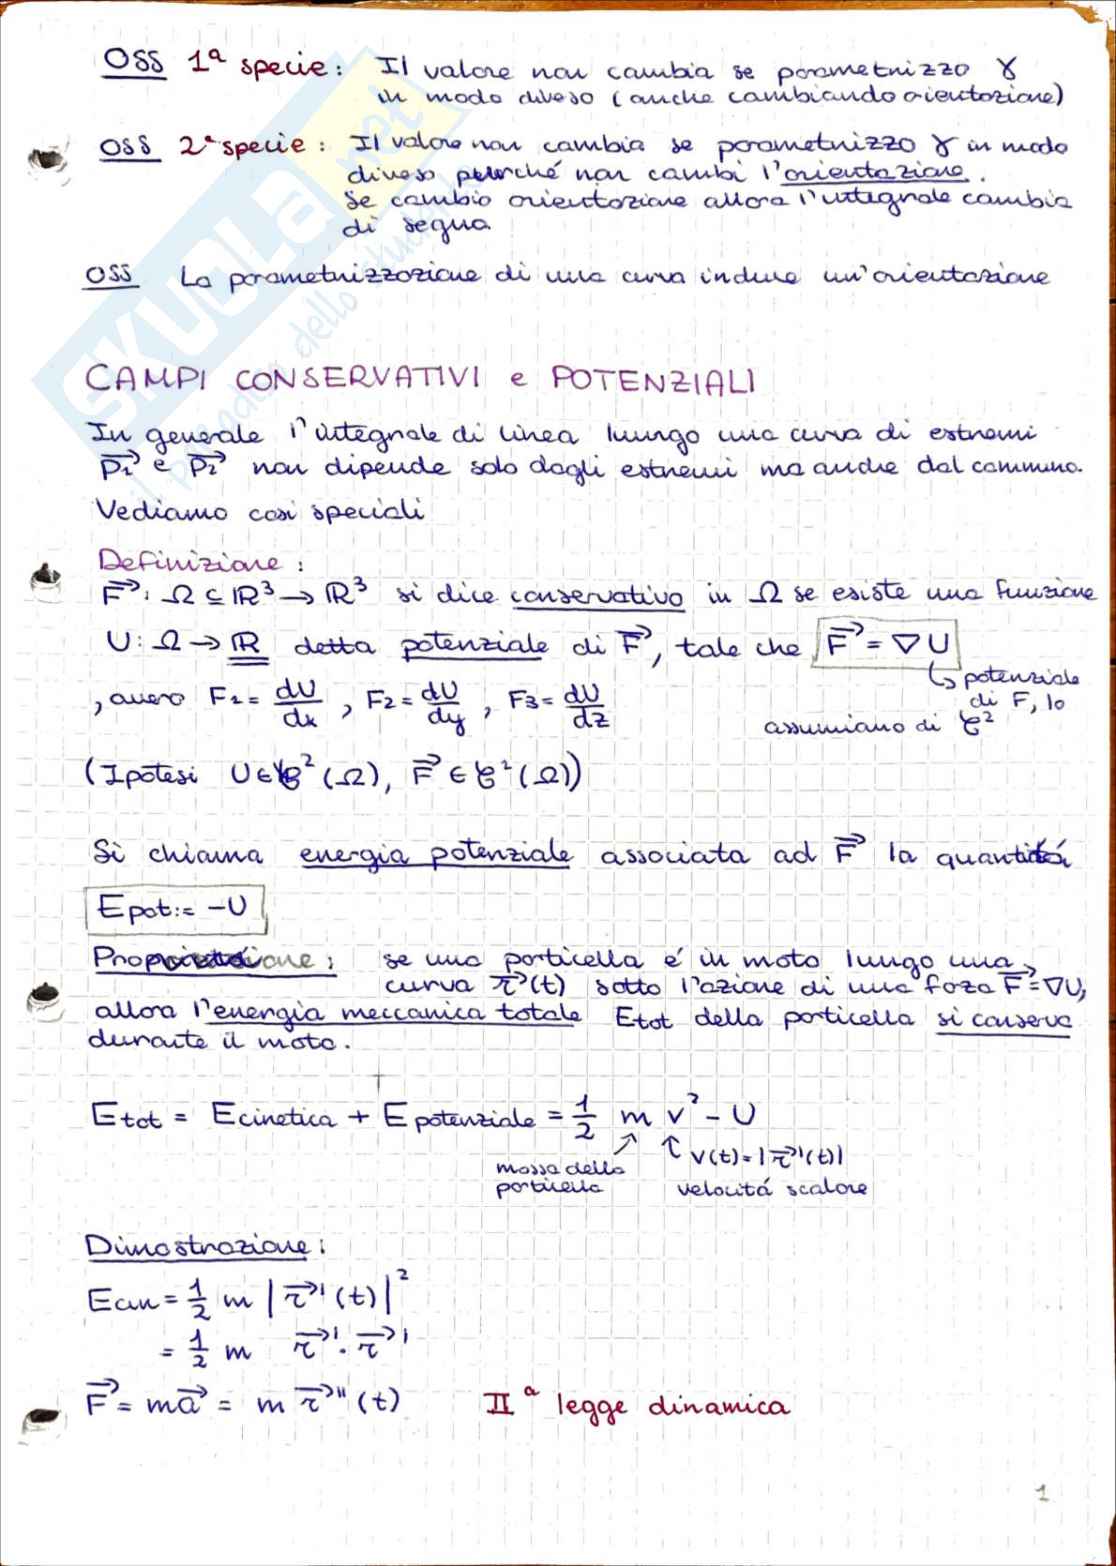 OSS 1ª specie: Il valore non cambia se parametrizzo γ
in modo diverso (anche cambiando orientazione)
OSS 2ª specie: Il valore non cambia se parametrizzo γ in modo
diverso perché non cambi l'orientazione.
Se cambio orientazione allora l'integrale cambia
di segno.
OSS La parametrizzazione di una curva induce un'orientazione
CAMPI CONSERVATIVI e POTENZIALI
In generale l'integrale di linea lungo una curva di estremi
P₁ e P₂ non dipende solo dagli estremi ma anche dal cammino.
Vediamo casi speciali
Definizione:
F⃗: Ω ⊆ ℝ³ → ℝ³ si dice conservativo in Ω se esiste una funzione
U: Ω → ℝ detta potenziale di F⃗, tale che F⃗ = ∇U
↳ potenziale
di F, lo
assumiamo di C²
, ovvero F₁ = dU/dx , F₂ = dU/dy , F₃ = dU/dz
(Ipotesi U ∈ C²(Ω), F⃗ ∈ C¹(Ω))
Si chiama energia potenziale associata ad F⃗ la quantità
Epot := -U
Proposizione: se una particella é in moto lungo una
curva r⃗(t) sotto l'azione di una forza F⃗ = ∇U,
allora l'energia meccanica totale Etot della particella si conserva
durante il moto.
Etot = Ecinetica + Epotenziale = 1/2 m v² - U
massa della
particella
v(t) = |r⃗'(t)|
velocitá scalare
Dimostrazione:
Ecin = 1/2 m |r⃗'(t)|²
= 1/2 m r⃗' · r⃗'
F⃗ = ma⃗ = m r⃗''(t) IIª legge dinamica
1
SKUOLA.net